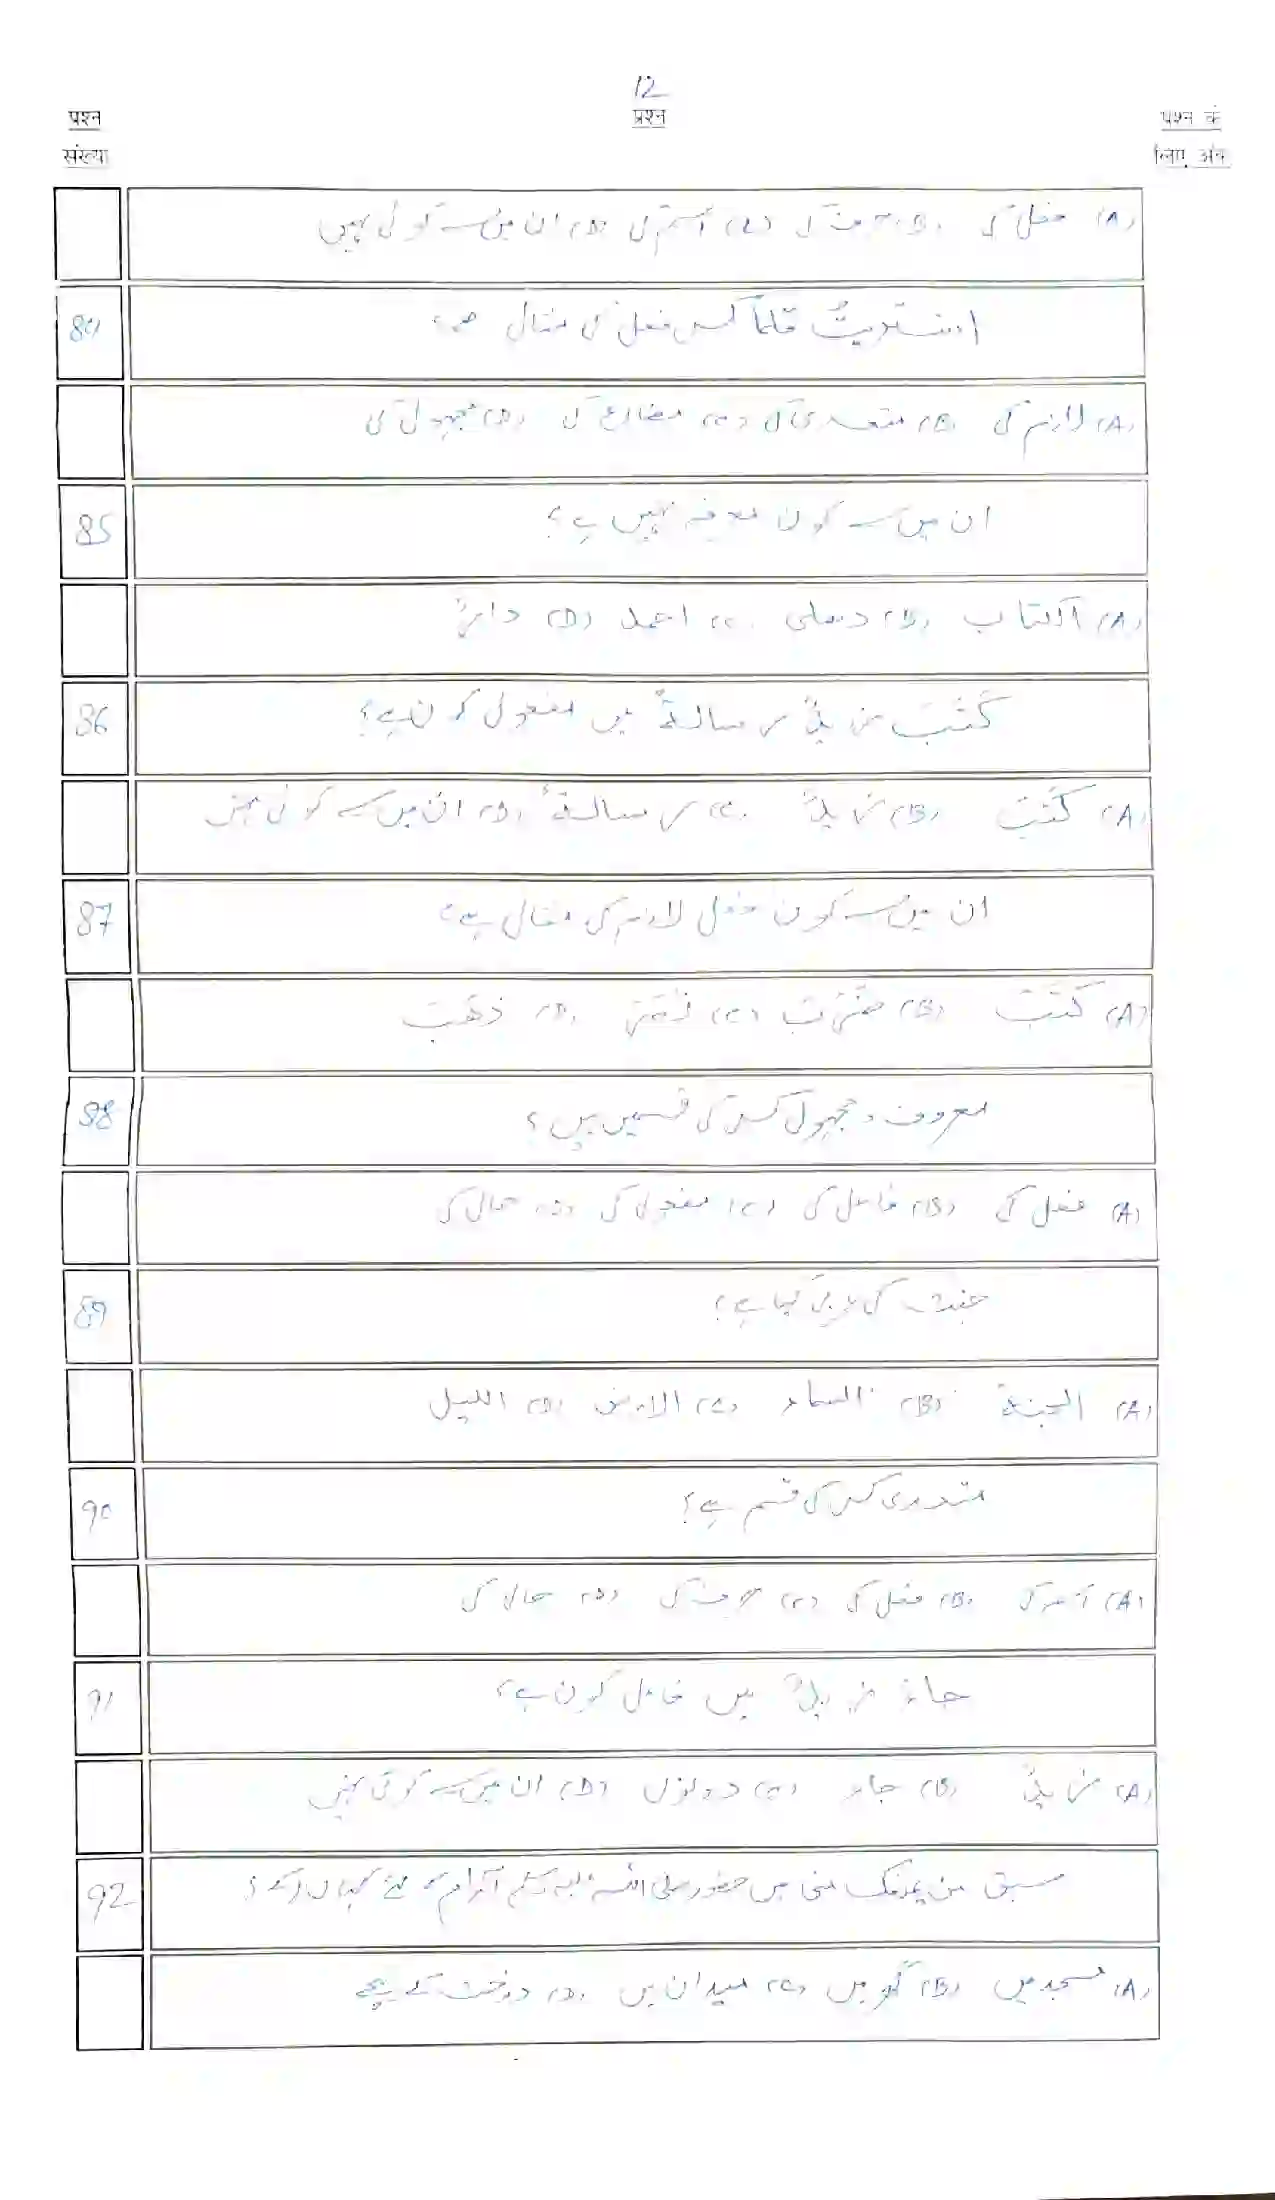 12
प्रश्न
संख्या
प्रश्न
प्रश्न के
लिए अंक
(A) فعل کی (B) حرف کی (C) اسم کی (D) ان میں سے کوئی نہیں
84
اشتریتُ قلماً کس فعل کی مثال ہے؟
(A) لازم کی (B) متعدی کی (C) مضارع کی (D) مجہول کی
85
ان میں سے کون معرفہ نہیں ہے؟
(A) الکتاب (B) دھلی (C) احمد (D)
86
کَتَبَ زیدٌ رسالةً میں مفعول کون ہے؟
(A) کَتَبَ (B) زیدٌ (C) رسالةً (D) ان میں سے کوئی نہیں
87
ان میں سے کون فعل لازم کی مثال ہے؟
(A) کَتَبَ (B) ضَرَبَ (C) نَصَرَ (D) ذَهَبَ
88
معروف و مجہول کس کی قسمیں ہیں؟
(A) فعل کی (B) فاعل کی (C) مفعول کی (D) حال کی
89
جنت کی عربی کیا ہے؟
(A) الجنة (B) السماء (C) الارض (D) اللیل
90
متعدی کس کی قسم ہے؟
(A) اسم کی (B) فعل کی (C) حرف کی (D) حال کی
91
جاء زیدٌ میں فاعل کون ہے؟
(A) زیدٌ (B) جاء (C) دونوں (D) ان میں سے کوئی نہیں
92
سبق من یمنعک منی میں حضور صلی اللہ علیہ وسلم آرام کے لئے کہاں رکے؟
(A) مسجد میں (B) گھر میں (C) میدان میں (D) درخت کے نیچے